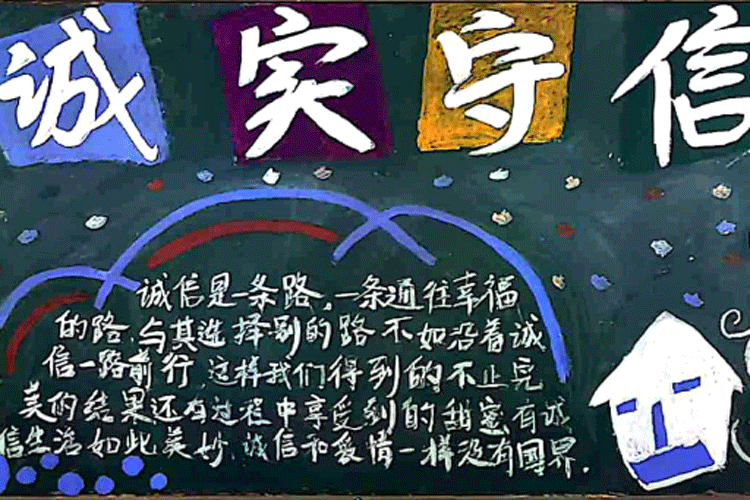 诚实守信
诚信是一条路，一条通往幸福
的路，与其选择别的路不如沿着诚
信一路前行，这样我们得到的不止完
美的结果还有过程中享受到的甜蜜有诚
信生活如此美妙，诚信和爱情一样没有國界.